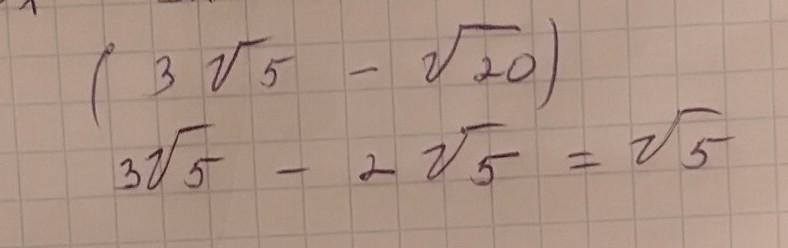 ( 3 √5 - √20 )
3√5 - 2 √5 = √5